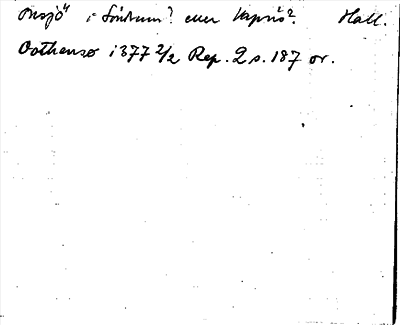 Onsjö i Söndrum? eller Kapris? Hall.
Oothenso 1377 2/2 Rep. 2 s. 187 or.